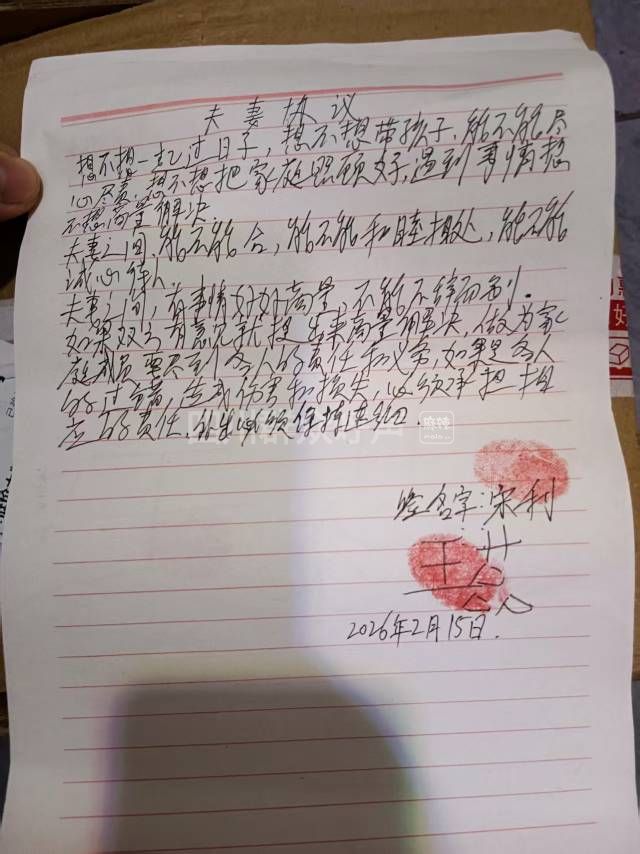 夫妻协议
想不想一起过日子，想不想带孩子，能不能尽
心尽责，想不想把家庭照顾好，遇到事情想
不想商量解决。
夫妻之间，能不能合，能不能和睦相处，能不能
诚心待人
夫妻之间，有事情好好商量，不能不辞而别。
如果双方有意见就提出来商量解决，做为家
庭成员要尽到各人的责任和义务，如果是各人
的过错，造成伤害和损失，必须承担相
应的责任，外出必须保持连
四川群众呼声
麻辣
mala.cn
签名字：宋利
王
2026年2月15日.
好